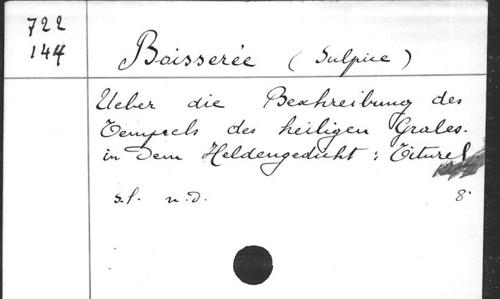 722
144
Boisserée (Sulpice)
Ueber die Beschreibung des
Tempels des heiligen Grales.
in dem Heldengedicht: Titurel.
s.l. n.d. 8°